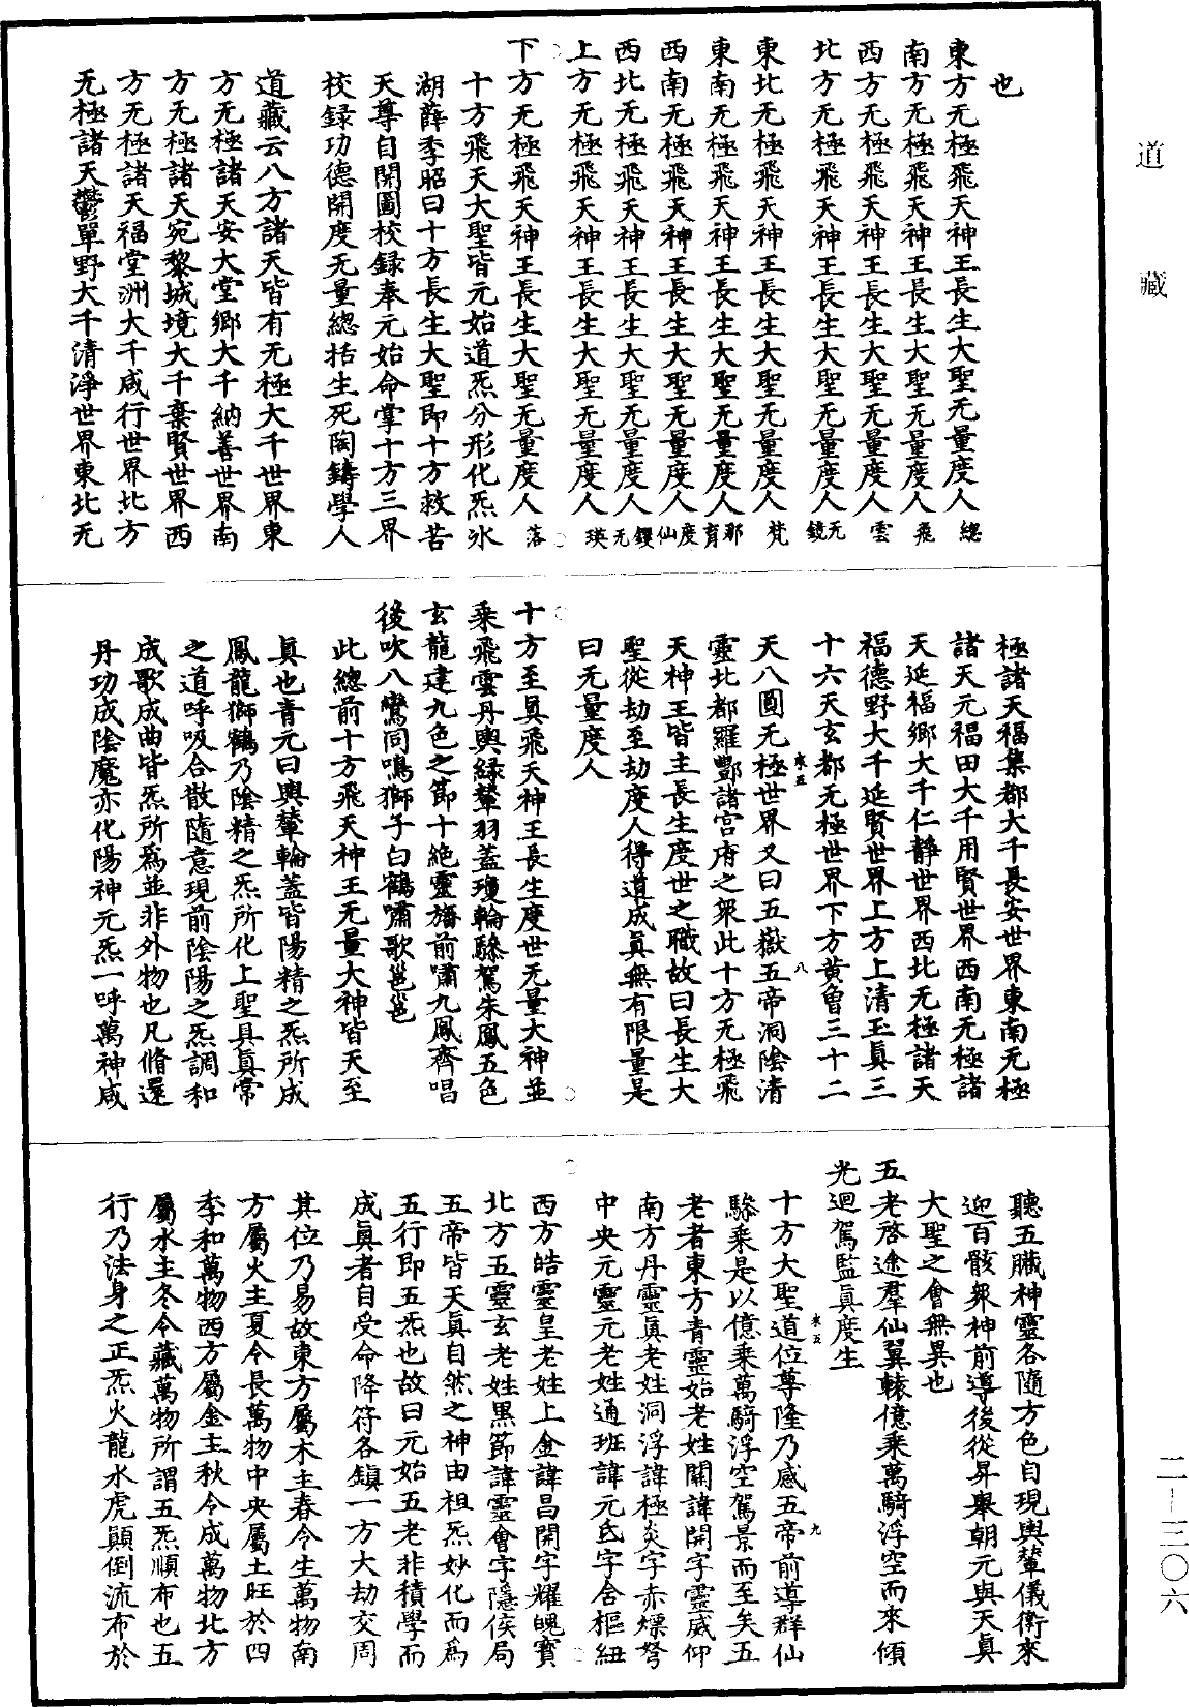 道藏
二—三〇六
也
東方无極飛天神王長生大聖无量度人總
南方无極飛天神王長生大聖无量度人飛
西方无極飛天神王長生大聖无量度人雲
北方无極飛天神王長生大聖无量度人无鏡
東北无極飛天神王長生大聖无量度人梵
東南无極飛天神王長生大聖无量度人那育
西南无極飛天神王長生大聖无量度人度仙
西北无極飛天神王長生大聖无量度人鑁无
上方无極飛天神王長生大聖无量度人瑛
下方无極飛天神王長生大聖无量度人落
十方飛天大聖皆元始道炁分形化炁氷
湖薛季昭曰十方長生大聖即十方救苦
天尊自開圖校録奉元始命掌十方三界
校録功德開度无量總括生死陶鑄學人
道藏云八方諸天皆有无極大千世界東
方无極諸天安大堂鄉大千納善世界南
方无極諸天宛黎城境大千棄賢世界西
方无極諸天福堂洲大千咸行世界北方
无極諸天鬱單野大千清淨世界東北无
極諸天福集都大千長安世界東南无極
諸天元福田大千用賢世界西南无極諸
天延福鄉大千仁靜世界西北无極諸天
福德野大千延賢世界上方上清玉真三
十六天玄都无極世界下方黃曾三十二
天八圓无極世界又曰五嶽五帝洞陰清
靈北都羅酆諸宮府之衆此十方无極飛
天神王皆主長生度世之職故曰長生大
聖從劫至劫度人得道成真無有限量是
曰无量度人
十方至真飛天神王長生度世无量大神並
乘飛雲丹輿綠輦羽蓋瓊輪驂駕朱鳳五色
玄龍建九色之節十絕靈旛前嘯九鳳齊唱
後吹八鸞同鳴獅子白鶴嘯歌邕邕
此總前十方飛天神王无量大神皆天至
真也青元曰輿輦輪蓋皆陽精之炁所成
鳳龍獅鶴乃陰精之炁所化上聖具真常
之道呼吸合散隨意現前陰陽之炁調和
成歌成曲皆炁所爲並非外物也凡脩還
丹功成陰魔亦化陽神元炁一呼萬神咸
聽五臟神靈各隨方色自現輿輦儀衛來
迎百骸衆神前導後從昇舉朝元與天真
大聖之會無異也
五老啓途羣仙翼轅億乘萬騎浮空而來傾
光迴駕監真度生
十方大聖道位尊隆乃感五帝前導群仙
驂乘是以億乘萬騎浮空駕景而至矣五
老者東方青靈始老姓閻諱開字靈威仰
南方丹靈真老姓洞浮諱極炎字赤熛弩
中央元靈元老姓通班諱元氐字含樞紐
西方皓靈皇老姓上金諱昌開字耀魄寶
北方五靈玄老姓黑節諱靈會字隱侯局
五帝皆天真自然之神由祖炁妙化而爲
五行即五炁也故曰元始五老非積學而
成真者自受命降符各鎮一方大劫交周
其位乃易故東方屬木主春令生萬物南
方屬火主夏令長萬物中央屬土旺於四
季和萬物西方屬金主秋令成萬物北方
屬水主冬令藏萬物所謂五炁順布也五
行乃法身之正炁火龍水虎顛倒流布於